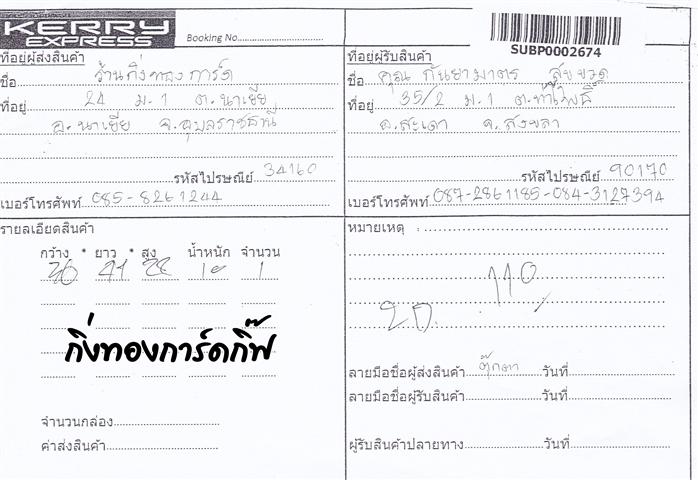 KERRY
EXPRESS
Booking No.
SUBP0002674
ที่อยู่ผู้ส่งสินค้า
ชื่อ ร้านกิ่งทองการ์ด
ที่อยู่ 24 ม.1 ต.นาเยีย
อ.นาเยีย จ.อุบลราชธานี
รหัสไปรษณีย์ 34160
เบอร์โทรศัพท์ 085-8261244
ที่อยู่ผู้รับสินค้า
ชื่อ คุณ กันยามาตร
ที่อยู่ 35/2 ม.1 ต.ท่าโพธิ์
อ.สะเดา จ.สงขลา
รหัสไปรษณีย์ 90170
เบอร์โทรศัพท์ 087-2861185-084-3127394
รายละเอียดสินค้า
กว้าง * ยาว * สูง น้ำหนัก จำนวน
30 41 1
กิ่งทองการ์ดกิ๊ฟ
จำนวนกล่อง
ค่าส่งสินค้า
หมายเหตุ :
110
20
ลายมือชื่อผู้ส่งสินค้า ตุ๊กตา วันที่
ลายมือชื่อผู้รับสินค้า วันที่
ผู้รับสินค้าปลายทาง วันที่